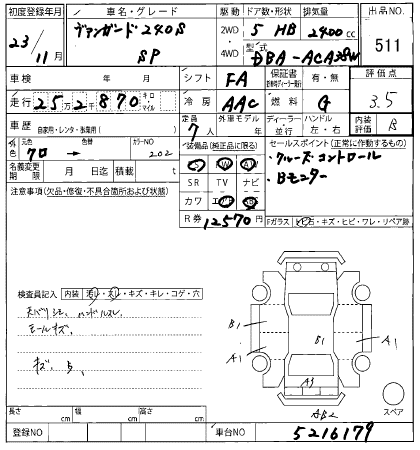 初度登録年月 車名・グレード 駆動 ドア数・形状 排気量 出品NO.
23/11月 ヴァンガード 240S 2WD 5 HB 2400cc 511
SP 4WD 型式 DBA-ACA38W
車検 年 月 シフト FA 保証書 有・無 評価点
走行 25万2千870 キロ・マイル 冷房 AAC 燃料 G 3.5
車歴 自家用・レンタ・事業用( ) 定員 7人 外車モデル 年 ディーラー・並行 ハンドル 左・右 内装 B
外色 元色 クロ → 色替 カラーNO 202 装備品(純正品に限る) セールスポイント(正常に作動するもの)
名義変更期限 月 日迄 積載 t ・クルーズコントロール
SR TV ナビ ・Bモニター
注意事項(欠品・修復・不具合箇所および状態) カワ エアB
R券 12570円 Fガラス
検査員記入 内装 汚レ・スレ・キズ・キレ・コゲ・穴
モールキズ
キズ
B1 B1
A1 A1
A3
AB2
スペア
長さ cm 幅 cm 高さ cm
登録NO 車台NO 5216179